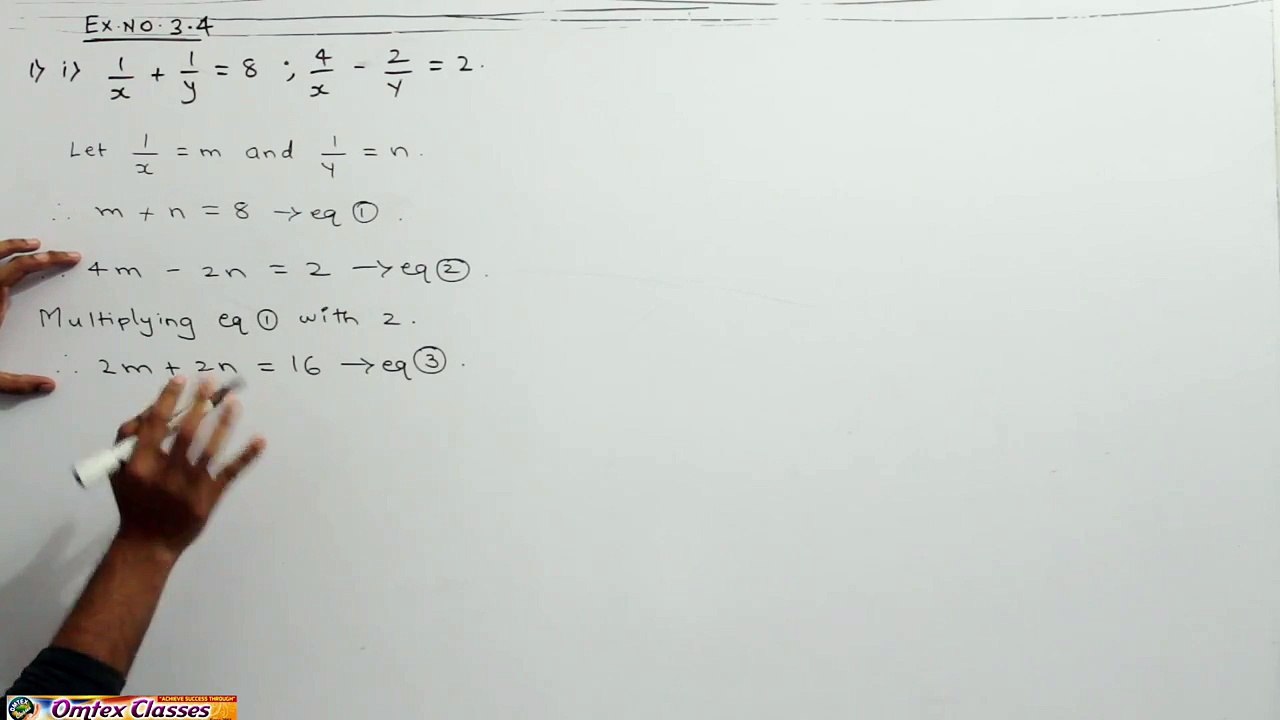 EX.NO.3.4
1) i) 1/x + 1/y = 8 ; 4/x - 2/y = 2.
Let 1/x = m and 1/y = n.
∴ m + n = 8 → eq ①.
∴ 4m - 2n = 2 → eq ②.
Multiplying eq ① with 2.
∴ 2m + 2n = 16 → eq ③.
"ACHIEVE SUCCESS THROUGH"
OMTEX
Omtex Classes